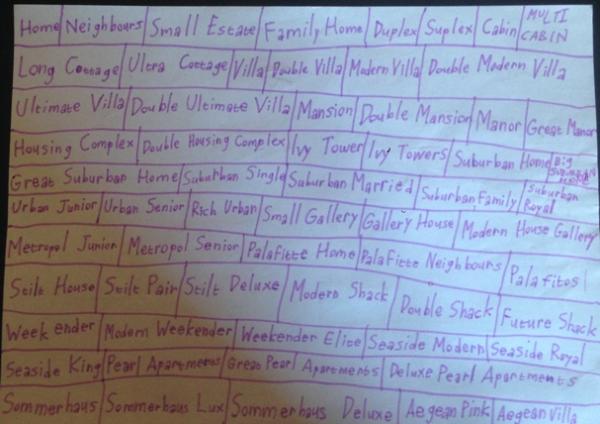 Home Neighbours Small Estate Family Home Duplex Suplex Cabin MULTI CABIN
Long Cottage Ultra Cottage Villa Double Villa Modern Villa Double Modern Villa
Ultimate Villa Double Ultimate Villa Mansion Double Mansion Manor Great Manor
Housing Complex Double Housing Complex Ivy Tower Ivy Towers Suburban Home BIG SUBURBAN HOME
Great Suburban Home Suburban Single Suburban Married Suburban Family Suburban Royal
Urban Junior Urban Senior Rich Urban Small Gallery Gallery House Modern House Gallery
Metropol Junior Metropol Senior Palafitte Home Palafitte Neighbours Palafitos
Stilt House Stilt Pair Stilt Deluxe Modern Shack Double Shack Future Shack
Weekender Modern Weekender Weekender Elite Seaside Modern Seaside Royal
Seaside King Pearl Apartments Great Pearl Apartments Deluxe Pearl Apartments
Sommerhaus Sommerhaus Lux Sommerhaus Deluxe Aegean Pink Aegean Villa